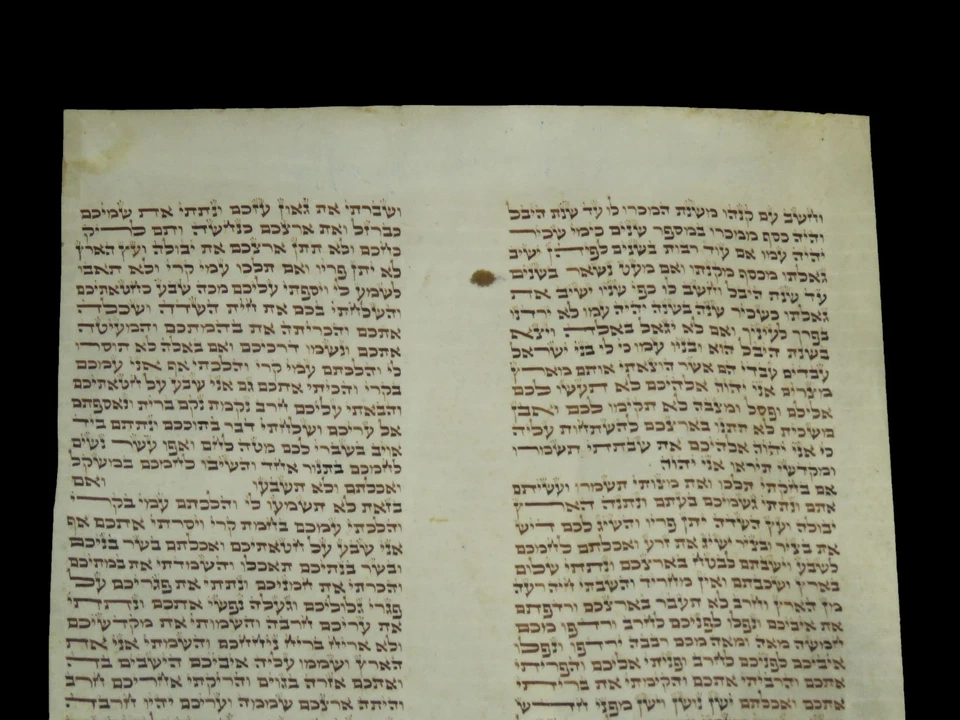 וחשב עם קנהו משנת המכרו לו עד שנת היבל
והיה כסף ממכרו במספר שנים כימי שכיר
יהיה עמו אם עוד רבות בשנים לפיהן ישיב
גאלתו מכסף מקנתו ואם מעט נשאר בשנים
עד שנת היבל וחשב לו כפי שניו ישיב את
גאלתו כשכיר שנה בשנה יהיה עמו לא ירדנו
בפרך לעיניך ואם לא יגאל באלה ויצא
בשנת היבל הוא ובניו עמו כי לי בני ישראל
עבדים עבדי הם אשר הוצאתי אותם מארץ
מצרים אני יהוה אלהיכם לא תעשו לכם
אלילם ופסל ומצבה לא תקימו לכם ואבן
משכית לא תתנו בארצכם להשתחות עליה
כי אני יהוה אלהיכם את שבתתי תשמרו
ומקדשי תיראו אני יהוה
אם בחקתי תלכו ואת מצותי תשמרו ועשיתם
אתם ונתתי גשמיכם בעתם ונתנה הארץ
יבולה ועץ השדה יתן פריו והשיג לכם דיש
את בציר ובציר ישיג את זרע ואכלתם לחמכם
לשבע וישבתם לבטח בארצכם ונתתי שלום
בארץ ושכבתם ואין מחריד והשבתי חיה רעה
מן הארץ וחרב לא תעבר בארצכם ורדפתם
את איביכם ונפלו לפניכם לחרב ורדפו מכם
חמשה מאה ומאה מכם רבבה ירדפו ונפלו
איביכם לפניכם לחרב ופניתי אליכם והפריתי
אתכם והרביתי אתכם והקימתי את בריתי
אתכם ואכלתם ישן נושן וישן מפני חדש
ושברתי את גאון עזכם ונתתי את שמיכם
כברזל ואת ארצכם כנחשה ותם לריק
כחכם ולא תתן ארצכם את יבולה ועץ הארץ
לא יתן פריו ואם תלכו עמי קרי ולא תאבו
לשמע לי ויספתי עליכם מכה שבע כחטאתיכם
והשלחתי בכם את חית השדה ושכלה
אתכם והכריתה את בהמתכם והמעיטה
אתכם ונשמו דרכיכם ואם באלה לא תוסרו
לי והלכתם עמי קרי והלכתי אף אני עמכם
בקרי והכיתי אתכם גם אני שבע על חטאתיכם
והבאתי עליכם חרב נקמת נקם ברית ונאספתם
אל עריכם ושלחתי דבר בתוככם ונתתם ביד
אויב בשברי לכם מטה לחם ואפו עשר נשים
לחמכם בתנור אחד והשיבו לחמכם במשקל
ואכלתם ולא תשבעו ואם
בזאת לא תשמעו לי והלכתם עמי בקרי
והלכתי עמכם בחמת קרי ויסרתי אתכם אף
אני שבע על חטאתיכם ואכלתם בשר בניכם
ובשר בנתיכם תאכלו והשמדתי את במתיכם
והכרתי את חמניכם ונתתי את פגריכם על
פגרי גלוליכם וגעלה נפשי אתכם ונתתי
את עריכם חרבה והשמותי את מקדשיכם
ולא אריח בריח ניחחכם והשמתי אני את
הארץ ושממו עליה איביכם הישבים בה
ואתכם אזרה בגוים והריקתי אחריכם חרב
והיתה ארצכם שממה ועריכם יהיו חרבה